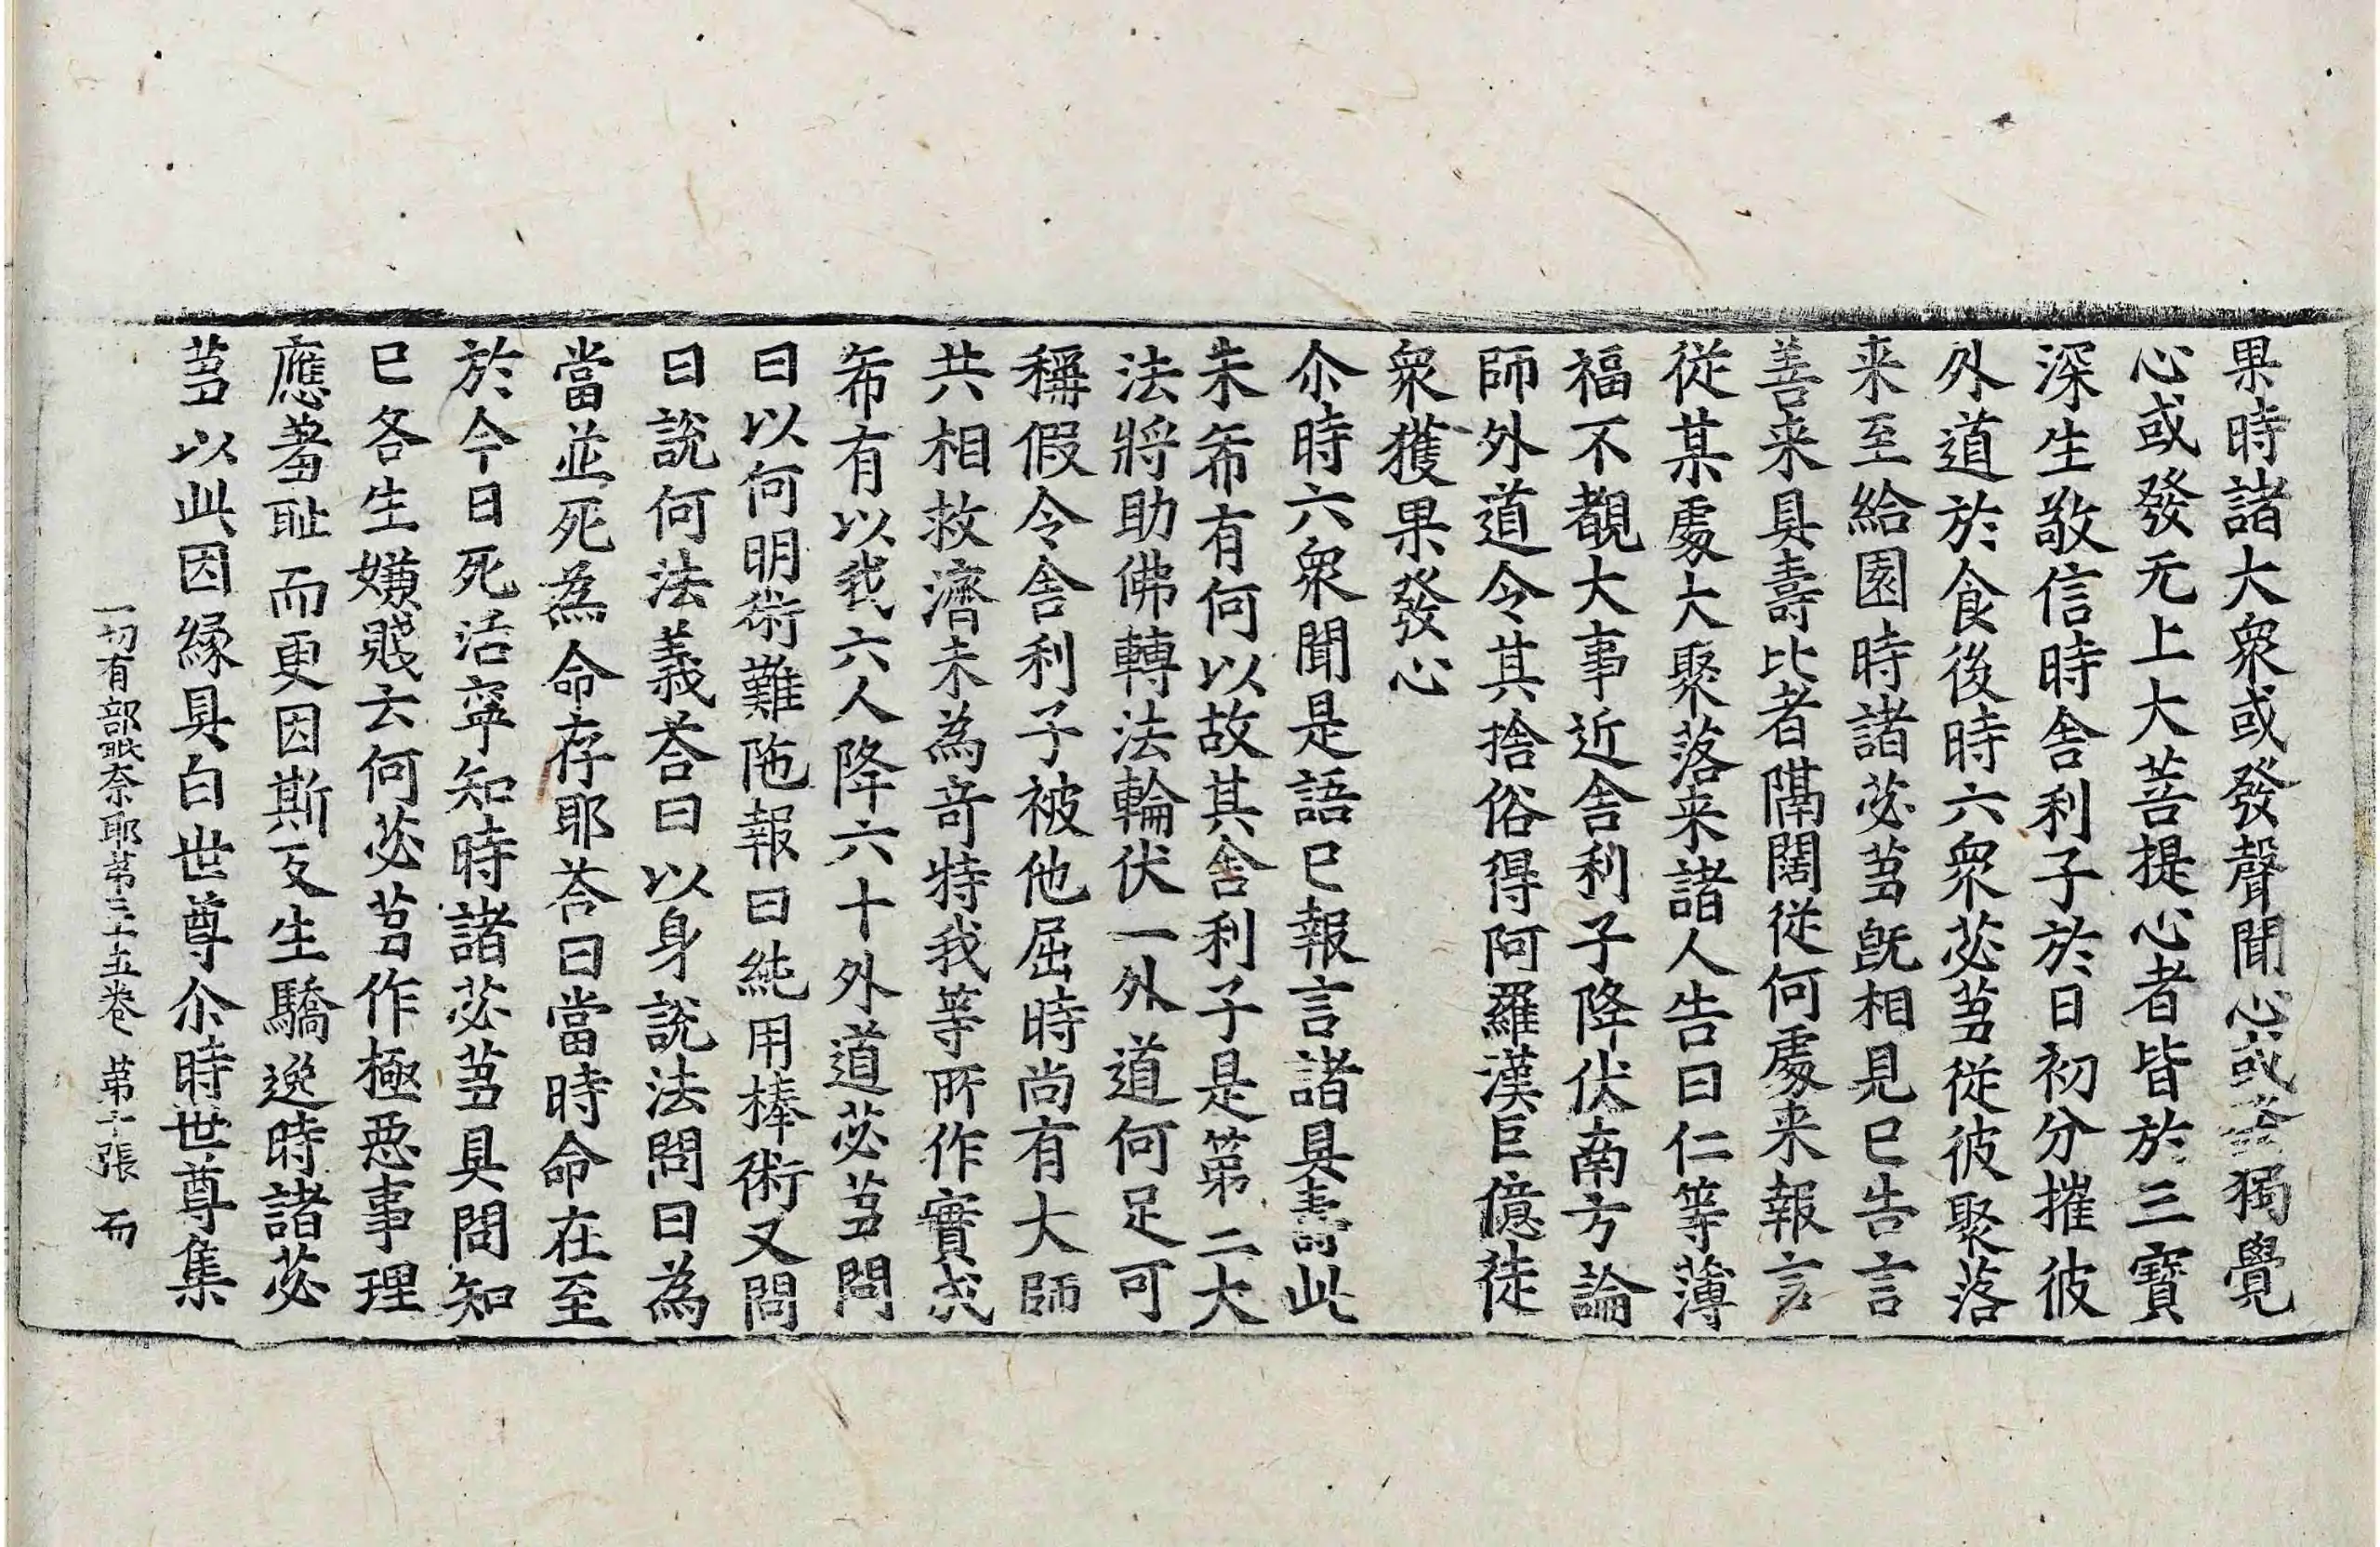 果時諸大衆或發聲聞心或發獨覺
心或發无上大菩提心者皆於三寶
深生敬信時舎利子於日初分摧彼
外道於食後時六衆苾芻從彼聚落
来至給園時諸苾芻旣相見已告言
善来具壽比者隔闊從何處来報言
從某處大聚落来諸人告曰仁等薄
福不覩大事近舎利子降伏南方論
師外道令其捨俗得阿羅漢巨億徒
衆獲果發心
尒時六衆聞是語已報言諸具壽此
未希有何以故其舎利子是第二大
法將助佛轉法輪伏一外道何足可
稱假令舎利子被他屈時尚有大師
共相救濟未為竒特我等所作實成
希有以我六人降六十外道苾芻問
曰以何明術難陁報曰純用棒術又問
曰說何法義荅曰以身說法問曰為
當並死為命存耶荅曰當時命在至
於今日死活寧知時諸苾芻具問知
已各生嫌賤云何苾芻作極惡事理
應羞耻而更因斯反生驕逸時諸苾
芻以此因縁具白世尊尒時世尊集
一切有部毗奈耶苐三十五卷 苐十張 而